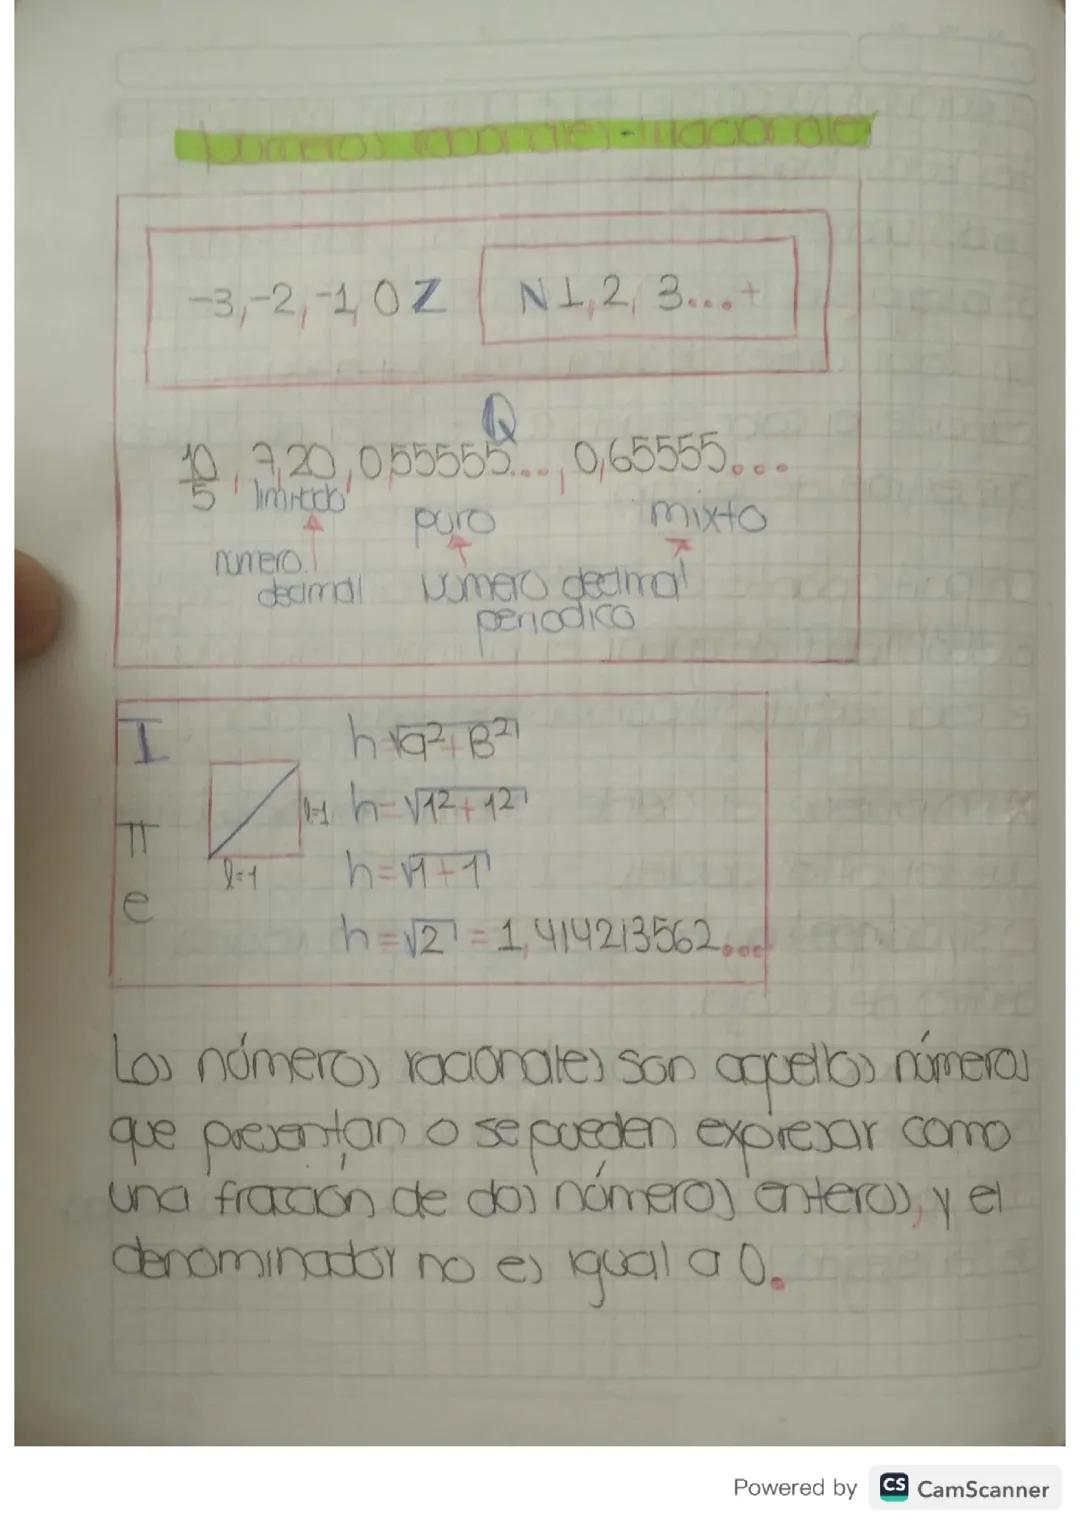 Números racionales-irracionales
-3,-2,-1,0 Z N 1,2,3...+
Q
10/5, 7,20, 0,55555..., 0,65555...
limitado puro mixto
numero decimal Numero decimal
periodico
I h=√a²+B²
l=1 h=√1²+1²
π
l=1 h=√1+1
e
h=√2=1,414213562...
Los números racionales son aquellos números
que presentan o se pueden expresar como
una fracción de dos números enteros, y el
denominador no es igual a 0.
Powered by CS CamScanner